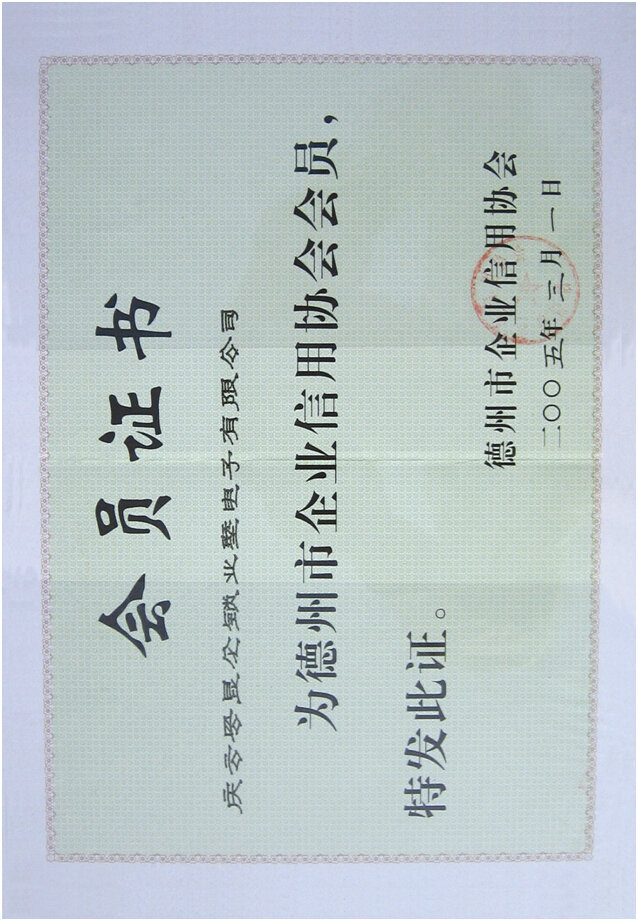 会员证书
庆云 锁业暨电子有限公司
为德州市企业信用协会会员，
特发此证。
德州市企业信用协会
二〇〇五年三月一日